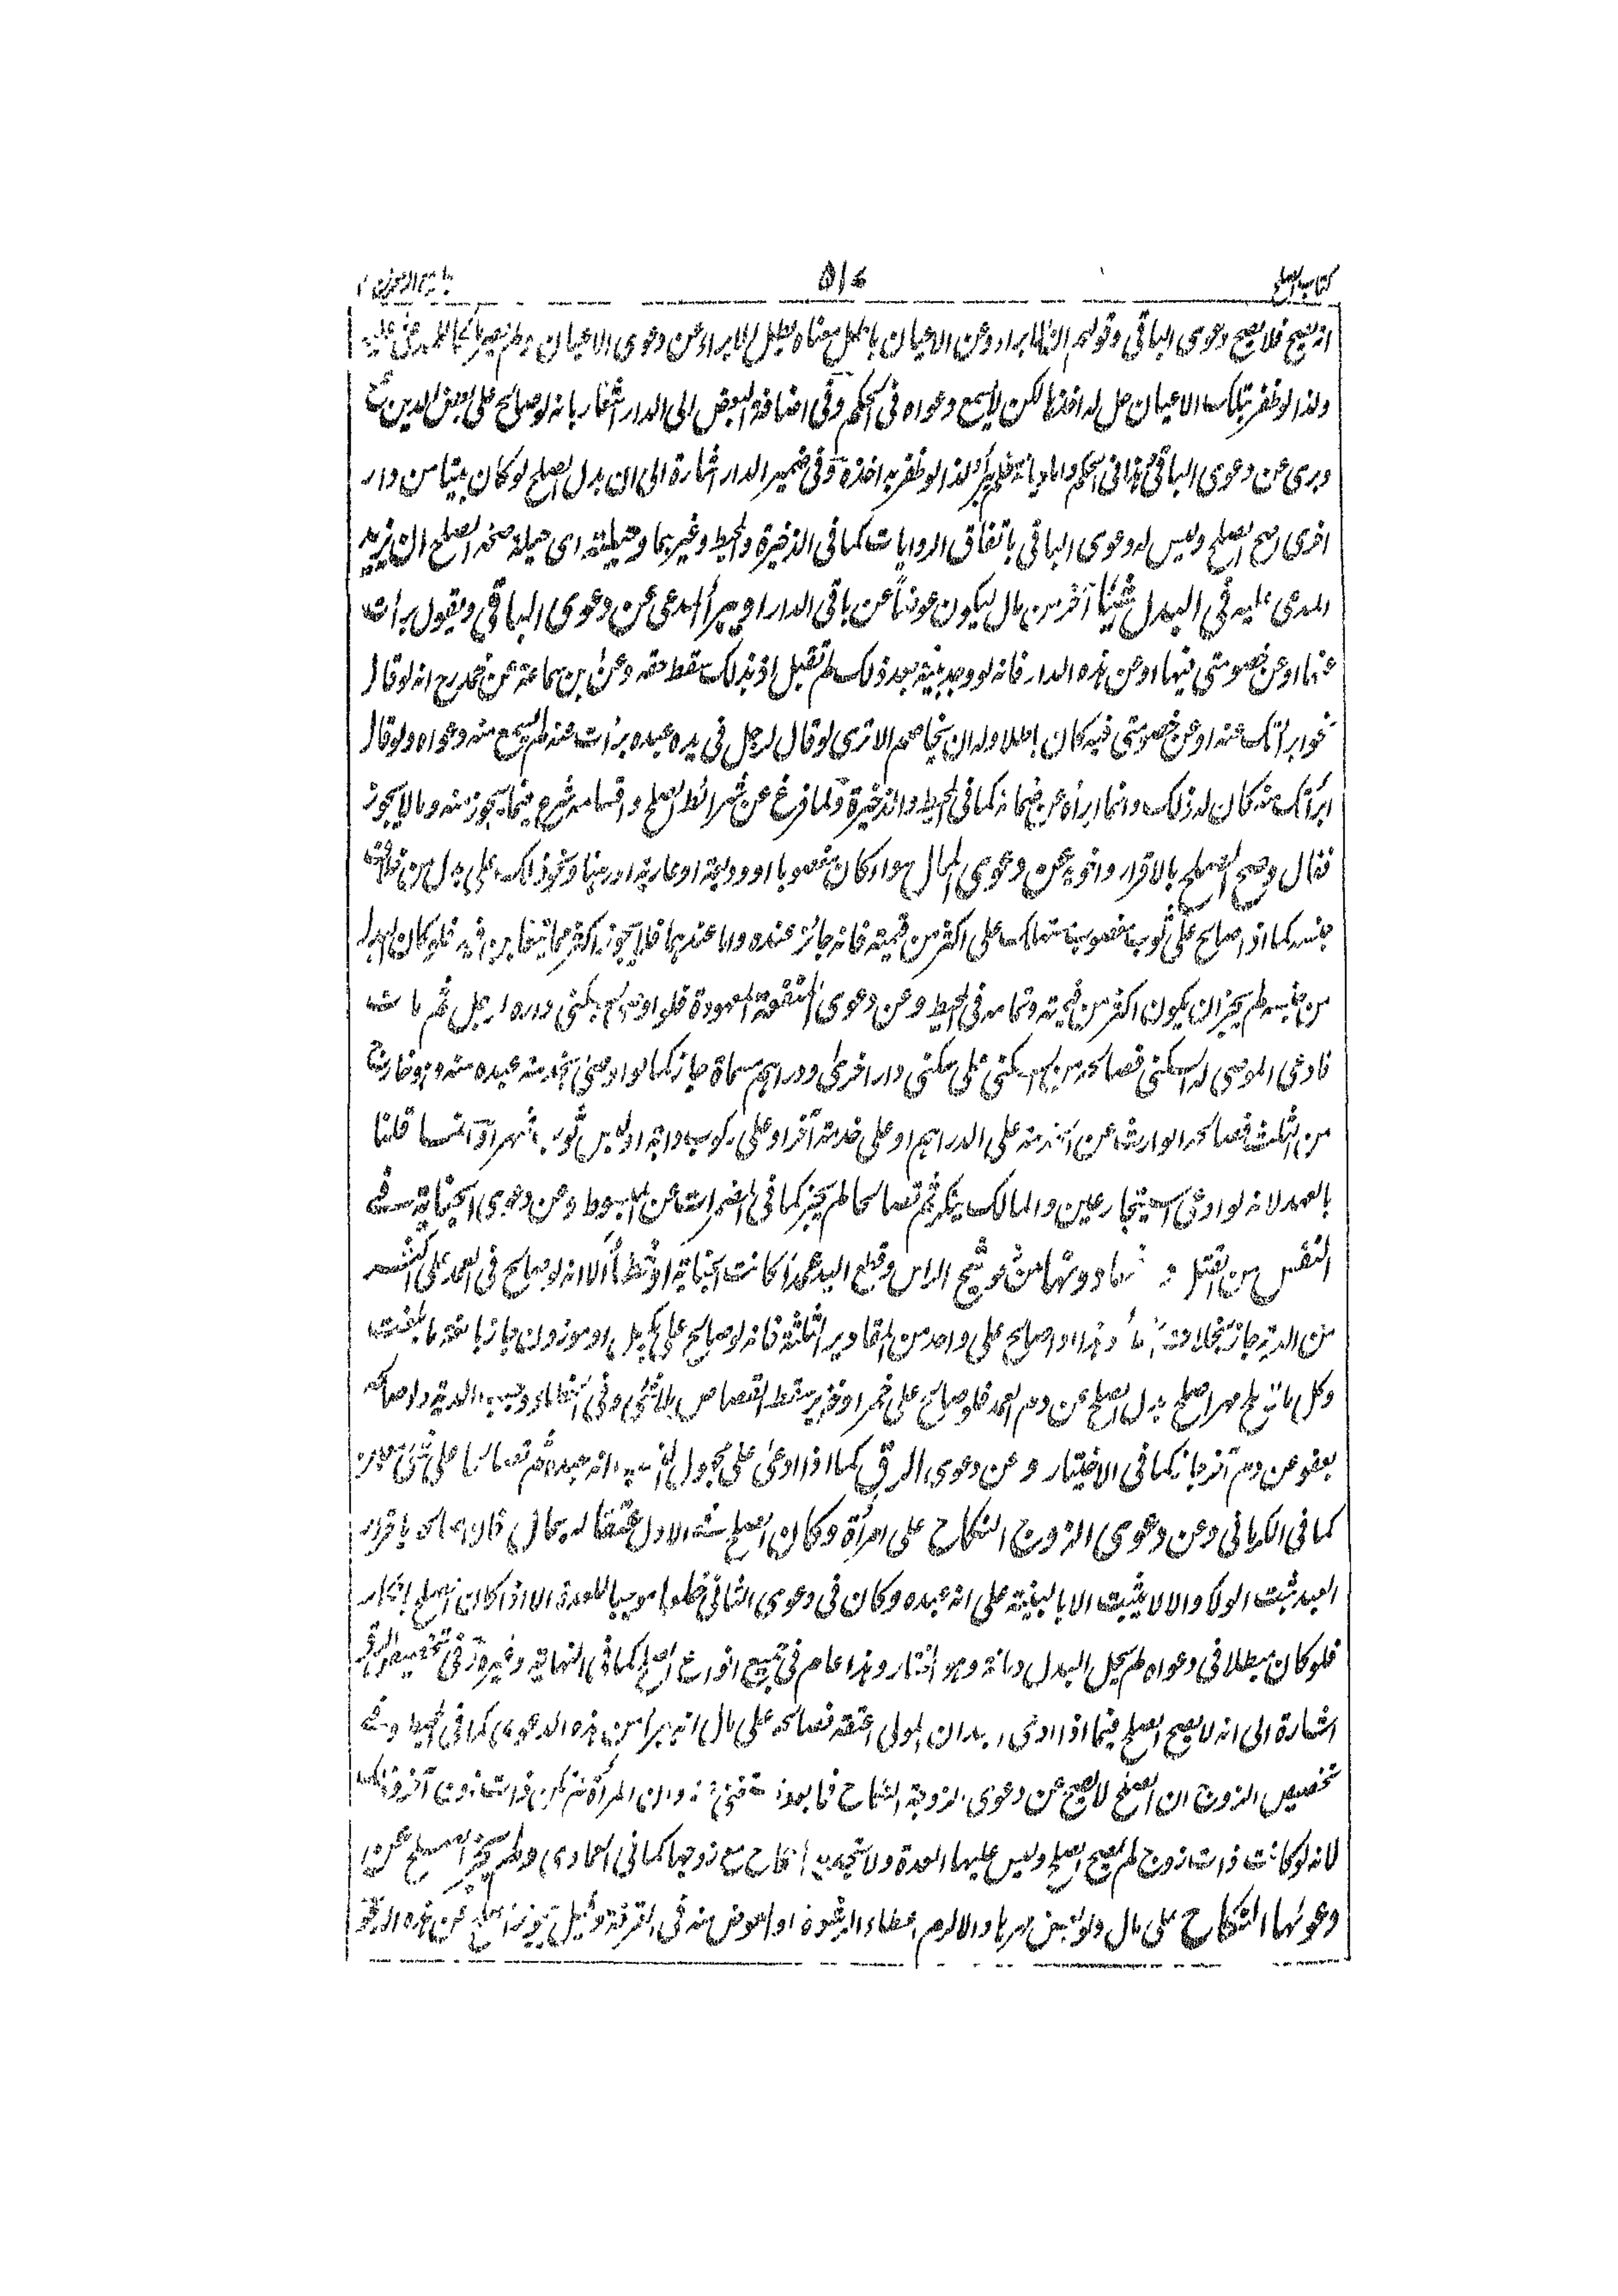 كتاب الصلح ٥١٤ جامع الرموز
انه يصح فلا يصح دعوى الباقي وقولهم ان الابراء عن الاعيان باطل معناه بطل الابراء عن دعوى الاعيان ولم يصر ملكا للمدعى عليه
ولذا لو ظفر بتلك الاعيان حل له اخذها لكن لا يسمع دعواه في الحكم وفي اضافة البعض الى الدار اشعار بانه لو صالح على بعض الدين صح
وبرئ عن دعوى الباقي وهذا في الحكم واما ديانة فلم يبرأ ولذا لو ظفر به اخذه وفي ضمير الدار اشارة الى ان بدل الصلح لو كان بيتا من دار
اخرى صح الصلح وليس له دعوى الباقي باتفاق الروايات كما في الذخيرة والمحيط وغيرهما وحيلته اى حيلة صحة الصلح ان يزيد
المدعى عليه في البدل شيئا آخر من مال ليكون عوضا عن باقي الدار او يبرأ المدعى عن دعوى الباقي ويقول برأت
عنها او عن خصومتي فيها او عن هذه الدار فانه لو وجد بينة بعد ذلك لم تقبل اذ بذلك سقط حقه وعن ابن سماعة عن محمد رح انه لو قال
نحو ابرأتك عنه او عن خصومتي فيه كان باطلا وله ان يخاصمه الا ترى لو قال لرجل في يده عبده برأت عنه لم يسمع منه دعواه ولو قال
ابرأتك منه كان له ذلك وانما ابرأه عن ضمانه كما في المحيط والذخيرة ولما فرغ عن شرائط الصلح واقسامه شرع فيما يجوز منه وما لا يجوز
فقال وصح الصلح بالاقرار واخويه عن دعوى المال سواء كان مغصوبا او وديعة او عارية او رهنا ونحو ذلك على بدل من خلاف
جنسه كما اذا صالح على ثوب مغصوب مستهلك على اكثر من قيمته فانه جائز عنده واما عندهما فلا يجوز باكثر مما يتغابن فيه فلو كان البدل
من جنسه لم يجز ان يكون اكثر من قيمته وتمامه في المحيط وعن دعوى المنفعة المعهودة فلو اوصى بسكنى داره لرجل ثم مات
فادعى الموصى له السكنى فصالحه من السكنى على سكنى دار اخرى او دراهم مسماة جاز كما لو اوصى بخدمة عبده سنة وهو خارج
من الثلث فصالحه الوارث عن الخدمة على الدراهم او على خدمة آخر او على ركوب دابة او لبس ثوب شهرا وانما قلنا
بالعهد لانه لو ادعى استيجار عين والمالك ينكر ثم تصالحا لم يجز كما في المضمرات عن المبسوط وعن دعوى الجناية في
النفس من القتل و ما دونها من نحو شج الراس وقطع اليد عمدا كانت الجناية او خطأ الا انه لو صالح في العمد على اكثر
من الدية جاز بخلاف الخطأ وهذا اذا صالح على واحد من المقادير الثلثة فانه لو صالح على مكيل او موزون جاز بالغة ما بلغت
وكل ما يصلح مهرا صلح بدل الصلح عن دم العمد فلو صالح على خمر او خنزير سقط القصاص بلا شئ وفي الخطاء وجبت الدية ولو صالح
بعفو عن دم آخر جاز كما في الاختيار وعن دعوى الرق كما اذا ادعى على مجهول النسب انه عبده ثم تصالحا على شئ معين
كما في الكرماني وعن دعوى الزوج النكاح على امرأة وكان الصلح في الاول عتقا له بمال فان صالحه باقرار
العبد ثبت الولاء والا لا يثبت الا بالبينة على انه عبده وكان في دعوى الثاني خلعا موجبا للعدة الا اذا كان الصلح بانكار
فلو كان مبطلا في دعواه لم يحل البدل ديانة وهو المختار وهذا عام في جميع انواع الصلح كما في النهاية وغيره وفي تخصيص الرق
اشارة الى انه لا يصح الصلح فيما اذا ادعى العبد ان المولى اعتقه فصالحه على مال انه برأ من هذه الدعوى كما في المحيط وفي
تخصيص الزوج ان الصلح لا يصح عن دعوى الزوجة النكاح وان المرأة لم تكن ذات زوج آخر وذلك
لانه لو كانت ذات زوج لم يصح الصلح وليس عليها العدة ولا تجديد النكاح مع زوجها كما في العمادي ولم يجز الصلح عن
دعواها النكاح على مال اعطاء الرشوة او العوض منه في الفرقة وقيل يجوز الصلح عن هذه الدعوى